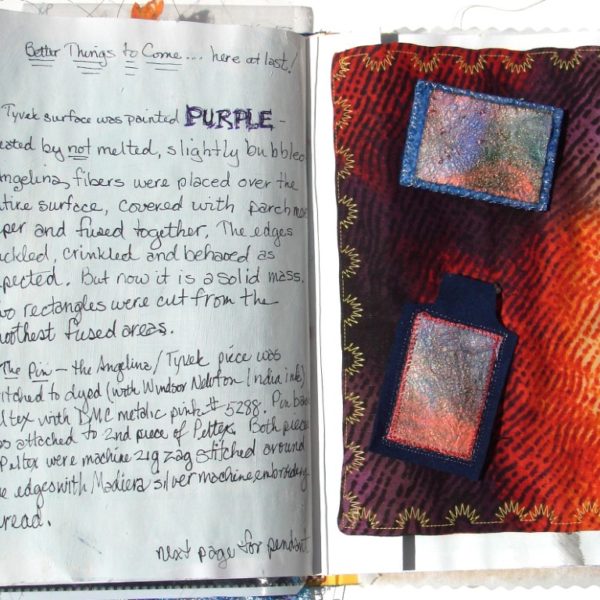 Better Things to Come... here at last!
Tyvek surface was painted PURPLE -
eated by not melted, slightly bubbled
ngelina fibers were placed over the
tire surface, covered with parchme
per and fused together. The edges
uckled, crinkled and behaved as
pected. But now it is a solid mass.
wo rectangles were cut from the
oothest fused areas.
The Pin - the Angelina/Tyvek piece was
titched to dyed (with Windsor Newton India ink)
ltex with DMC metalic pink # 5288. Pin back
as attached to 2nd piece of Peltex. Both piece
Peltex were machine zig zag stitched around
e edges with Madiera silver machine embroidery
read.
next page for pendant